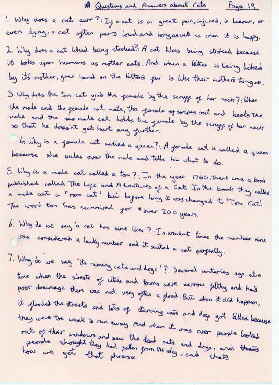 Questions and Answers about Cats Page 19
1. Why does a cat purr? If a cat is in great pain, injured, is
even dying, a cat often purrs loud and long as well as when it is happy.
2. Why does a cat liked being stroked? A cat likes being stroked because
it looks upon humans as mother cats. And when a kitten is being licked
by its mother, your hand on the kittens fur is like their mothers tongue.
3. Why does the tom cat grab the female by the scruff of her neck? When
the male and the female cat mate, the female
male and the male cat holds the female by the scruff of her neck
so that he doesn't get hurt any further.
4. Why is a female cat called a queen? A female cat is called a queen
because she rules over the male and tells him what to do.
5. Why is a male cat called a tom? In the year 1760, there was a book
published called The Life and Adventures of a Cat. In the book they called
a male cat a "ram cat" but before long it was changed to "Tom Cat".
The word tom has remained for over 200 years.
6. Why do we say "a cat has nine lives"? In ancient times the number nine
was considered a lucky number and it suited a cat perfectly.
7. Why do we say "its raining cats and dogs"? Several centuries ago at a
time when the streets of cities and towns were narrow filthy and had
poor drainage there was not very often a flood. But when it did happen,
it flooded the streets and lots of starving cats and dogs got killed because
they were too weak to run away. And when it was over people looked
out of their windows and saw the dead cats and dogs, even though
people thought they had fallen from the sky, and that's
how we got that phrase